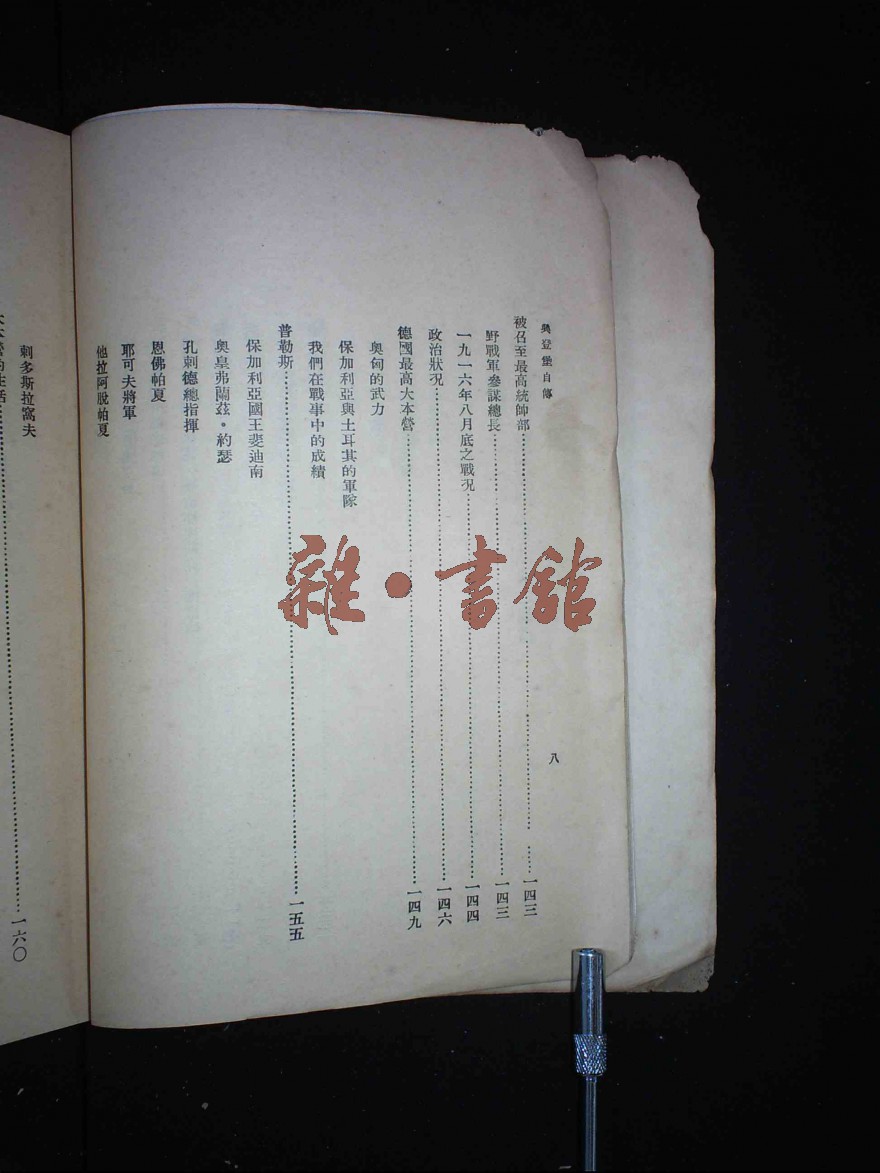 興登堡自傳
八
被召至最高統帥部……一四三
野戰軍參謀總長……一四三
一九一六年八月底之戰况……一四四
政治狀况……一四六
德國最高大本營……一四九
奧匈的武力
保加利亞與土耳其的軍隊
我們在戰事中的成績
普勒斯……一五五
保加利亞國王斐迪南
奧皇弗蘭茲·約瑟
孔剌德總指揮
恩佛帕夏
耶可夫將軍
他拉阿脫帕夏
剌多斯拉窩夫
營的生活……一六〇
雜·書館